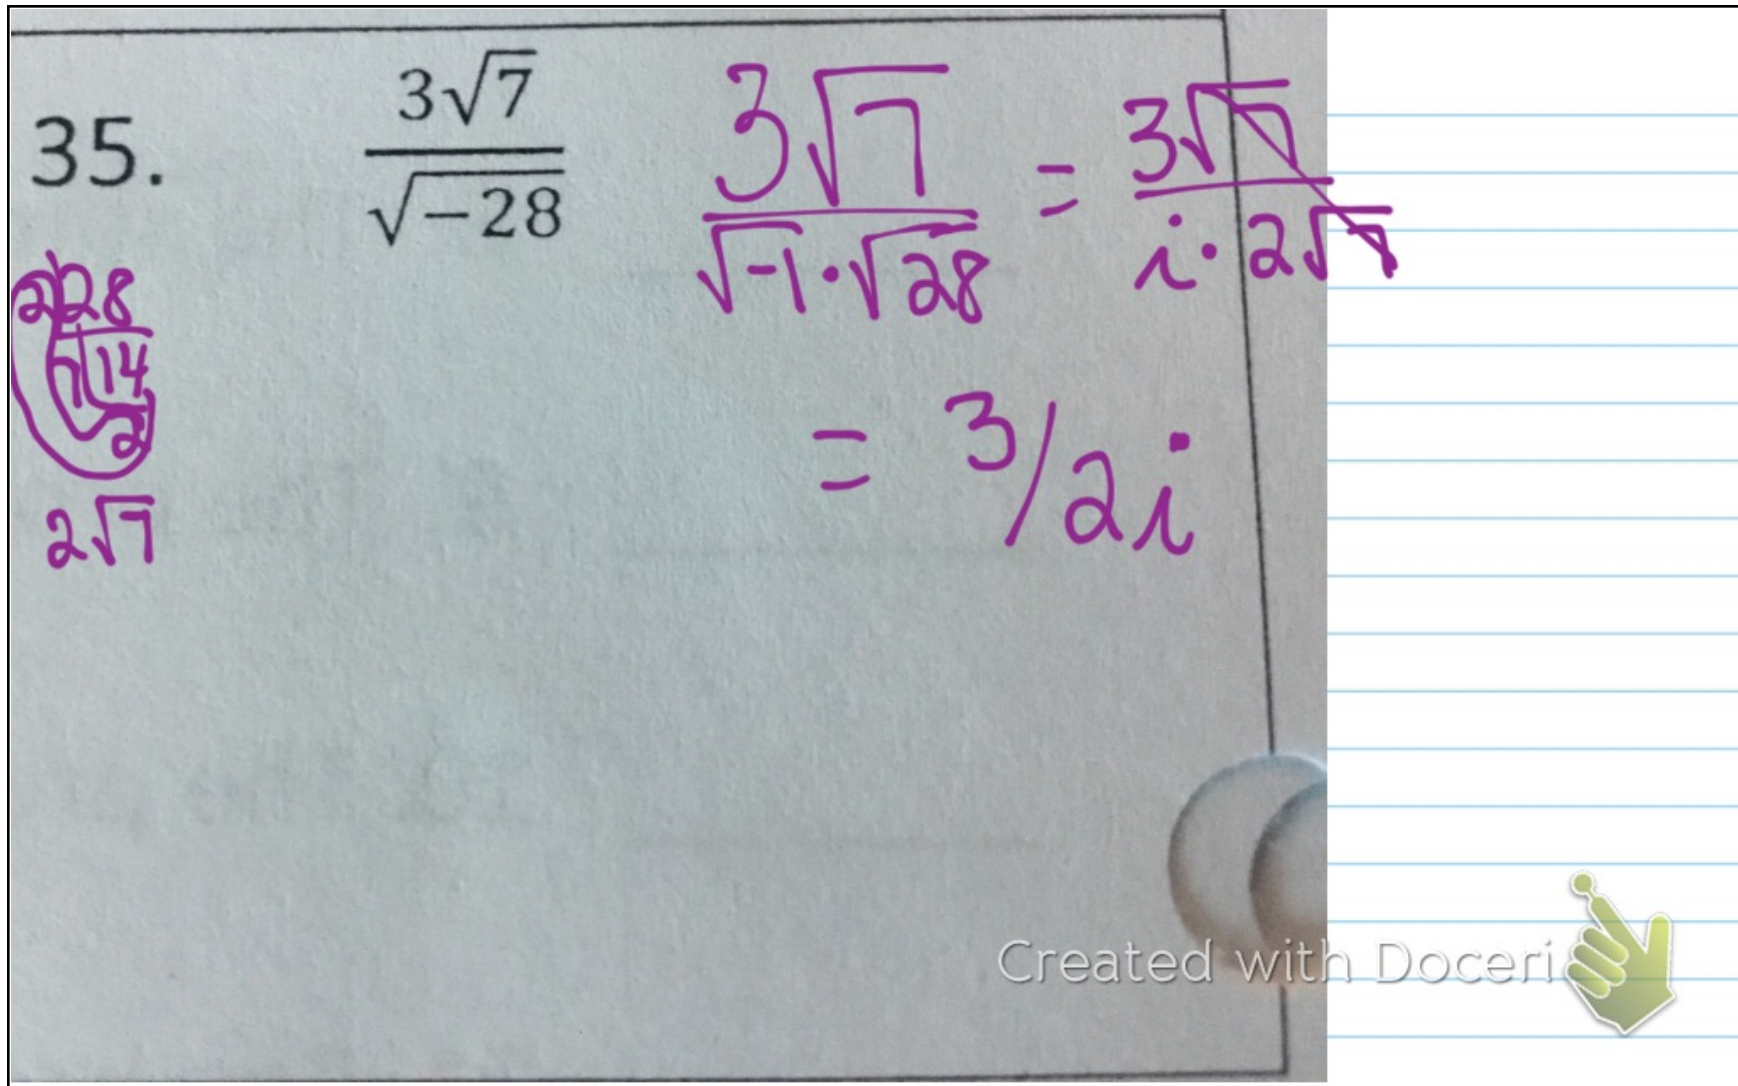 35. 3√7 / √−28
3√7 / √-1 · √28 = 3√7 / i · 2√7
2 28
7 14
2
2√7
= 3/2i
Created with Doceri